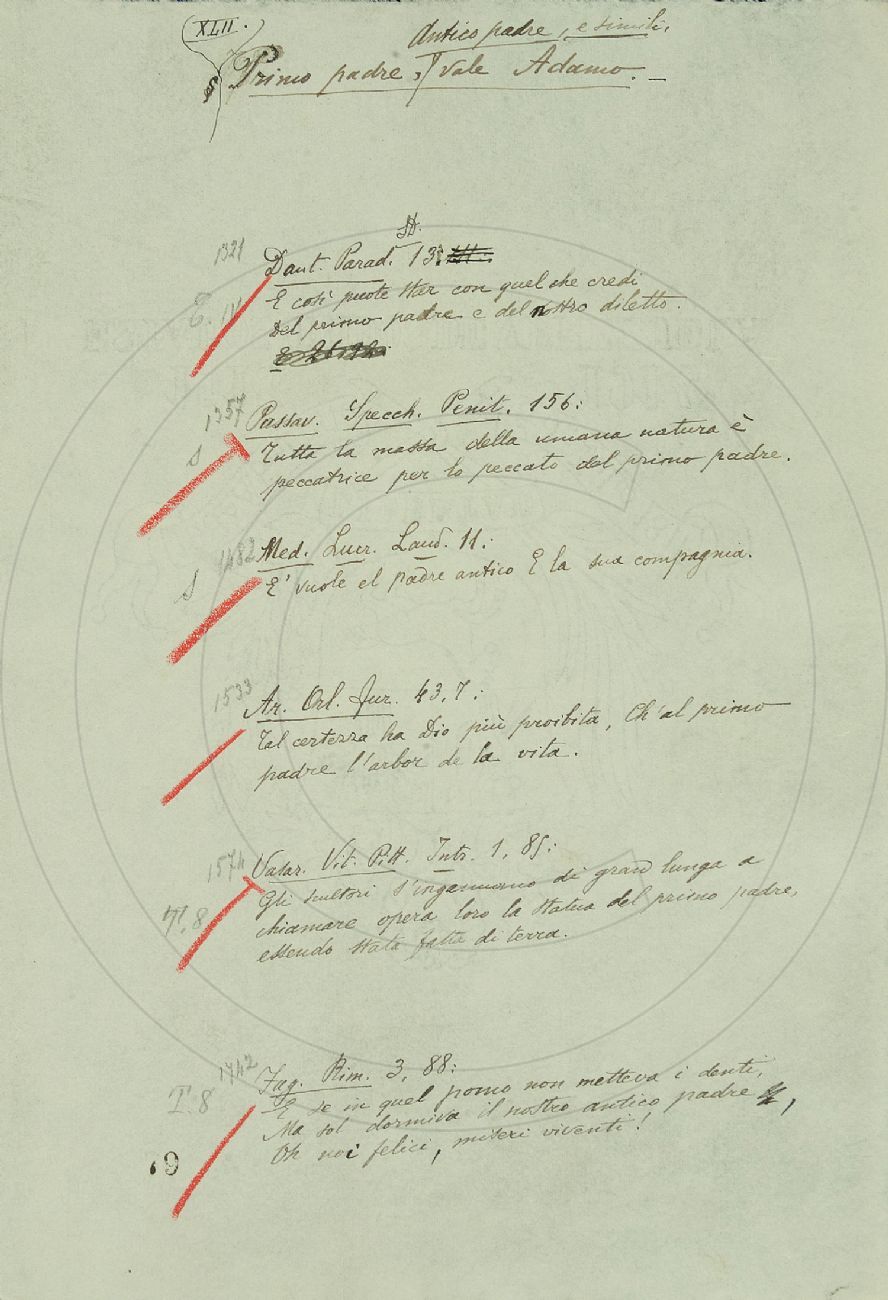 XLII.
Antico padre, e simili,
§ Primo padre, vale Adamo. —
1321
St.
Dant. Parad. 13:
E. 11
E così puote star con quel che credi
Del primo padre e del nostro diletto.
1357
Passav. Specch. Penit. 156:
S
Tutta la massa della umana natura è
peccatrice per lo peccato del primo padre.
1482
Med. Lucr. Laud. 11:
S
E' vuole el padre antico E la sua compagnia.
1533
Ar. Orl. Fur. 43, 7:
Tal certezza ha Dio più proibita, Ch'al primo
padre l'arbor de la vita.
1574
Vasar. Vit. Pitt. Intr. 1, 85:
T. 8
Gli scultori s'ingannano di gran lunga a
chiamare opera loro la statua del primo padre,
essendo stata fatta di terra.
1742
Fag. Rim. 3, 88:
T. 8
E se in quel pomo non metteva i denti,
Ma sol dormiva il nostro antico padre,
Oh noi felici, miseri viventi!
9